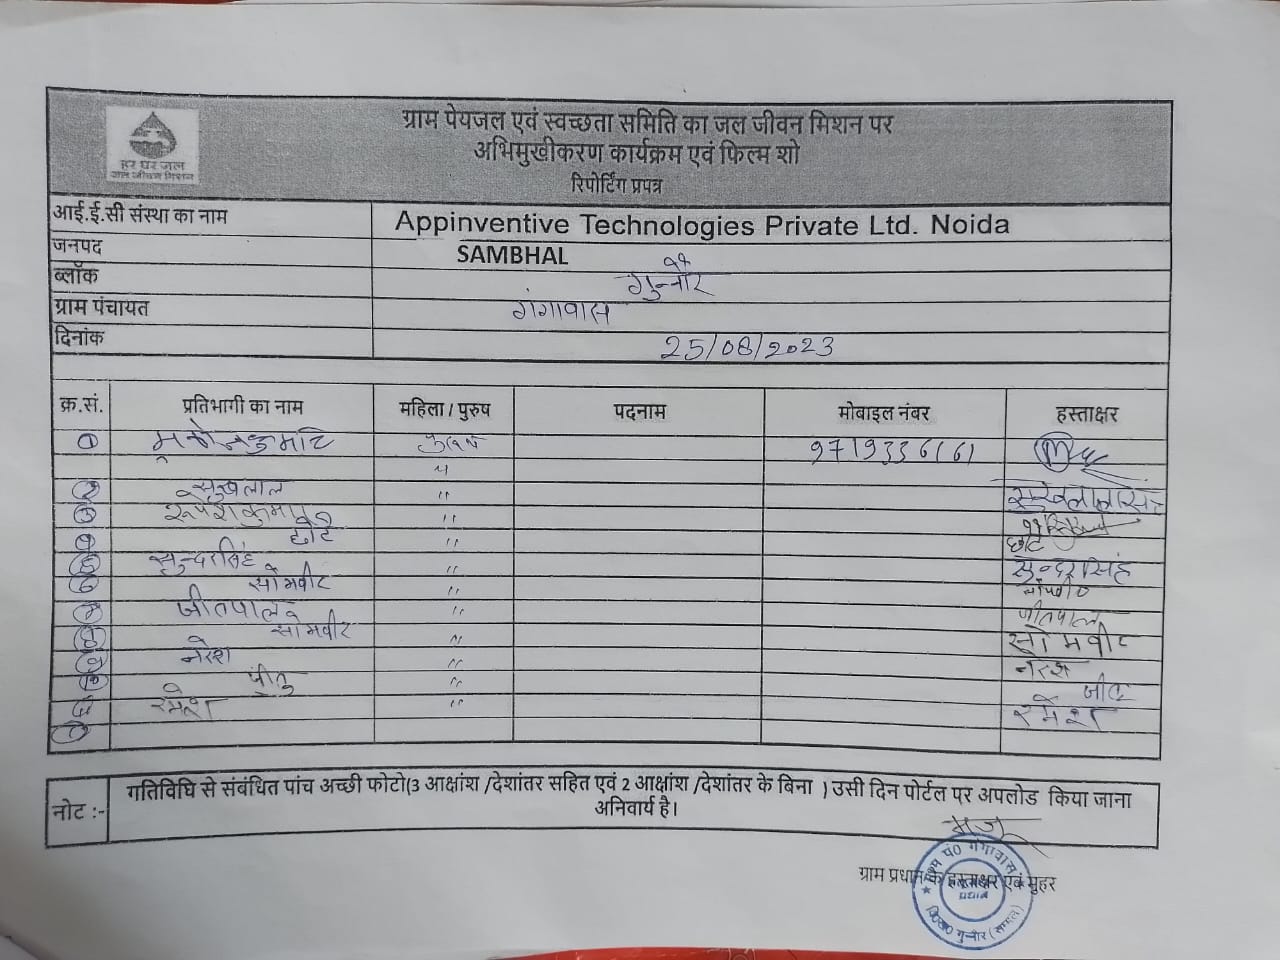 हर घर जल
जल जीवन मिशन
ग्राम पेयजल एवं स्वच्छता समिति का जल जीवन मिशन पर
अभिमुखीकरण कार्यक्रम एवं फिल्म शो
रिपोर्टिंग प्रपत्र
आई.ई.सी संस्था का नाम Appinventive Technologies Private Ltd. Noida
जनपद SAMBHAL
ब्लॉक गुन्नौर
ग्राम पंचायत गंगावास
दिनांक 25/08/2023
क्र.सं. प्रतिभागी का नाम महिला / पुरुष पदनाम मोबाइल नंबर हस्ताक्षर
1 पुरुष 9719336161
"
सुखलाल "
रूपेश कुमार "
छोटे " छोटे
सुन्दर सिंह " सुन्दर सिंह
सोमवीर "
जीतपाल " जीतपाल
सोमवीर " सोमवीर
नरेश " नरेश
"
रमेश " रमेश
नोट :- गतिविधि से संबंधित पांच अच्छी फोटो(3 आक्षांश /देशांतर सहित एवं 2 आक्षांश /देशांतर के बिना ) उसी दिन पोर्टल पर अपलोड किया जाना
अनिवार्य है।
ग्राम प्रधान के हस्ताक्षर एवं मुहर
ग्राम पं0 गंगावास
प्रधान
वि0ख0 गुन्नौर (सम्भल)